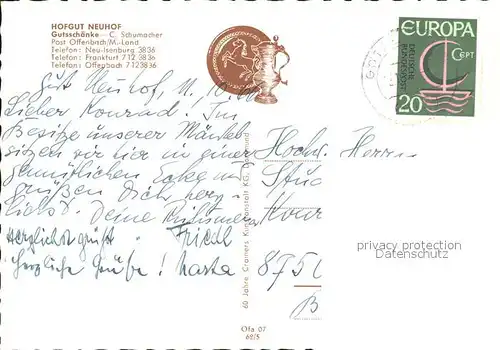 HOFGUT NEUHOF
Gutsschänke – C. Schumacher
Post Offenbach/M.-Land
Telefon: Neu-Isenburg 3836
Telefon: Frankfurt 712 3836
Telefon: Offenbach 7123836
Gut Neuhof, 11.10.66
Lieber Konrad. Im
Besitze unserer Mäntel
sitzen wir hier in einer
gemütlichen Ecke und
grüßen Dich herz-
lichst. Deine
herzlichst grüßt Friedl
herzliche Grüße!
Hochw. Herrn
Stud
Konr
875
B
EUROPA
CEPT
DEUTSCHE
BUNDESPOST
20
60 Jahre Cramers Kunstanstalt KG, Dortmund
Ofa 07
68/5
privacy protection
Datenschutz